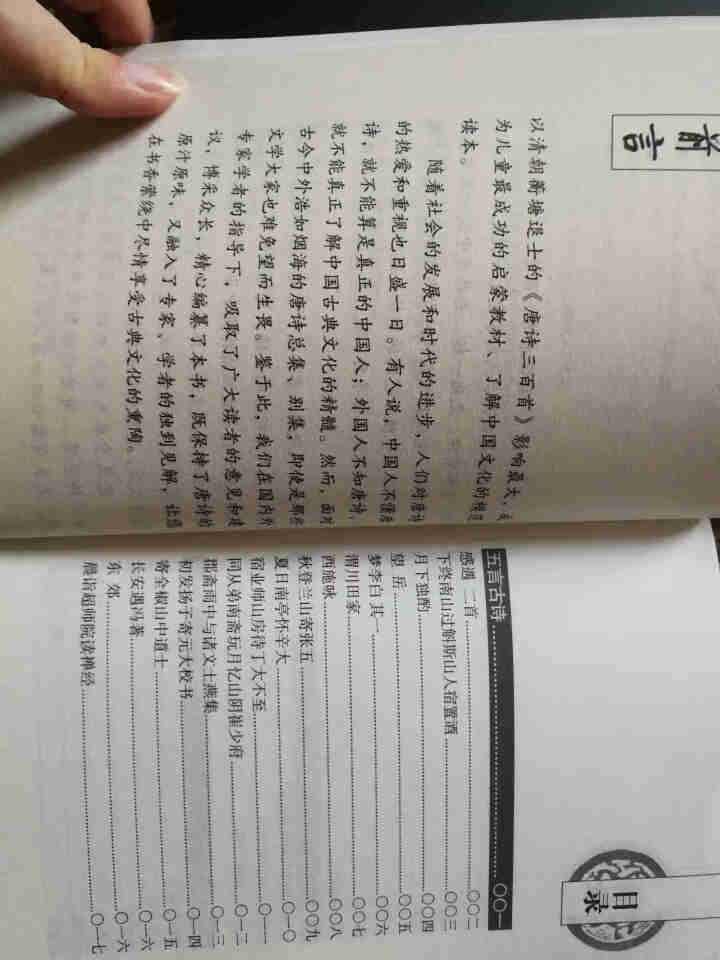 前言
以清朝蘅塘退士的《唐诗三百首》影响最大，
为儿童最成功的启蒙教材、了解中国文化的
读本。
随着社会的发展和时代的进步，人们对唐诗
的热爱和重视也日盛一日。有人说，中国人不懂
诗，就不能算是真正的中国人；外国人不知唐诗，
就不能真正了解中国古典文化的精髓。然而，面对
古今中外浩如烟海的唐诗总集、别集，即使是那些
文学大家也难免望而生畏。鉴于此，我们在国内外
专家学者的指导下，吸取了广大读者的意见和建
议，博采众长，精心编纂了本书，既保持了唐诗的
原汁原味，又融入了专家、学者的独到见解，让
在书香萦绕中尽情享受古典文化的熏陶。
目录
五言古诗……〇〇一
感遇 二首……〇〇二
下终南山过斛斯山人宿置酒……〇〇三
月下独酌……〇〇四
望 岳……〇〇五
梦李白 其一……〇〇六
渭川田家……〇〇七
西施咏……〇〇八
秋登兰山寄张五……〇〇九
夏日南亭怀辛大……〇一〇
宿业师山房待丁大不至……〇一一
同从弟南斋玩月忆山阴崔少府……〇一二
郡斋雨中与诸文士燕集……〇一三
初发扬子寄元大校书……〇一四
寄全椒山中道士……〇一五
长安遇冯著……〇一六
东 郊……〇一六
晨诣超师院读禅经……〇一七